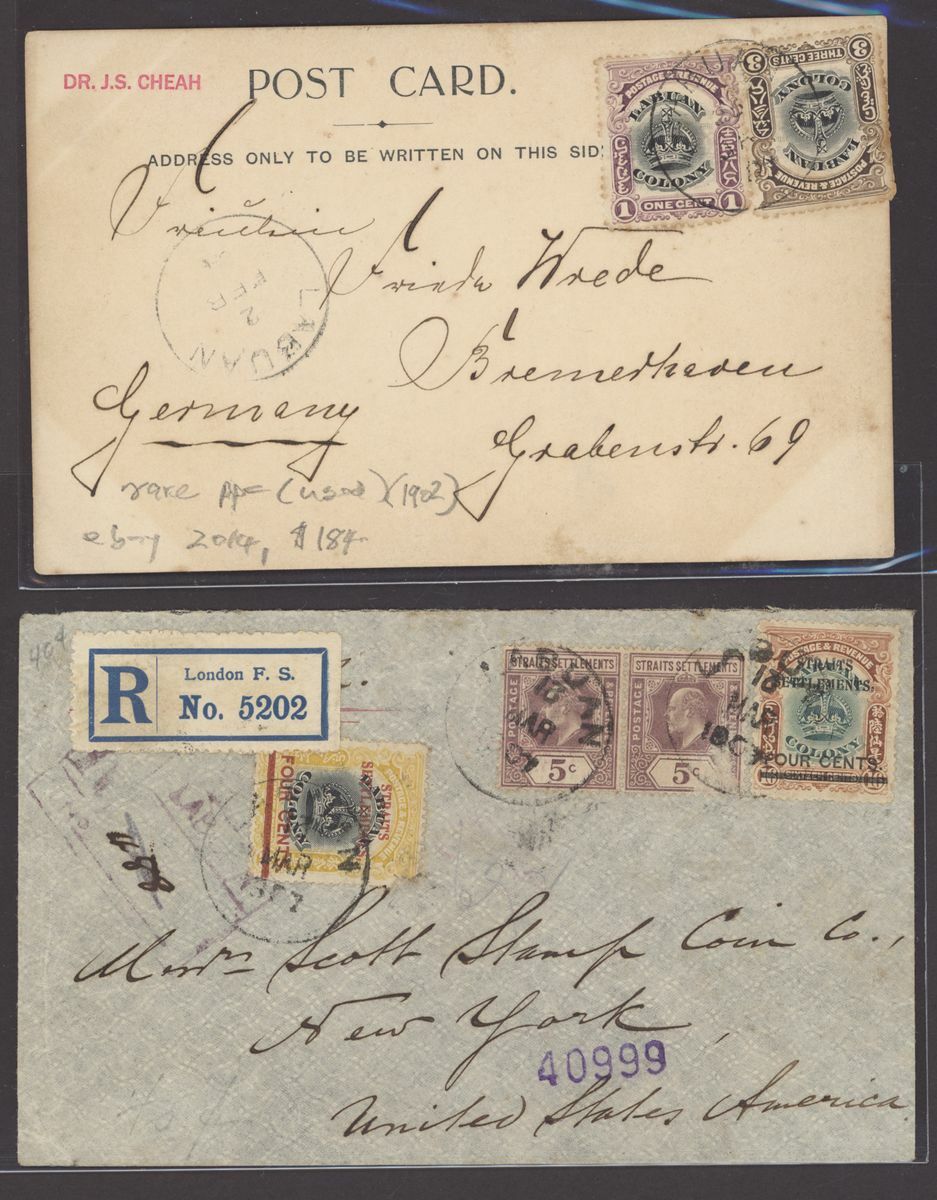 DR. J.S. CHEAH
POST CARD.
ADDRESS ONLY TO BE WRITTEN ON THIS SID
POSTAGE & REVENUE
LABUAN
COLONY
1 ONE CENT 1
3 THREE CENTS 3
LABUAN
COLONY
POSTAGE & REVENUE
Fräulein
Frieda Wrede
LABUAN
2
FEB
Bremerhaven
Germany
Grabenstr. 69
rare ppc (used) (1902)
ebay 2014, $184
R
London F. S.
No. 5202
STRAITS SETTLEMENTS
POSTAGE
5c
STRAITS SETTLEMENTS
POSTAGE
5c
LABUAN
18
MAR
07
18
MAR
1907
POSTAGE & REVENUE
STRAITS
SETTLEMENTS.
COLONY
FOUR CENTS.
STRAITS
SETTLEMENTS
POSTAGE & REVENUE
LABUAN
COLONY
FOUR CENTS
MAR
1907
Messrs Scott Stamp Coin Co.,
New York,
40999
United States America.